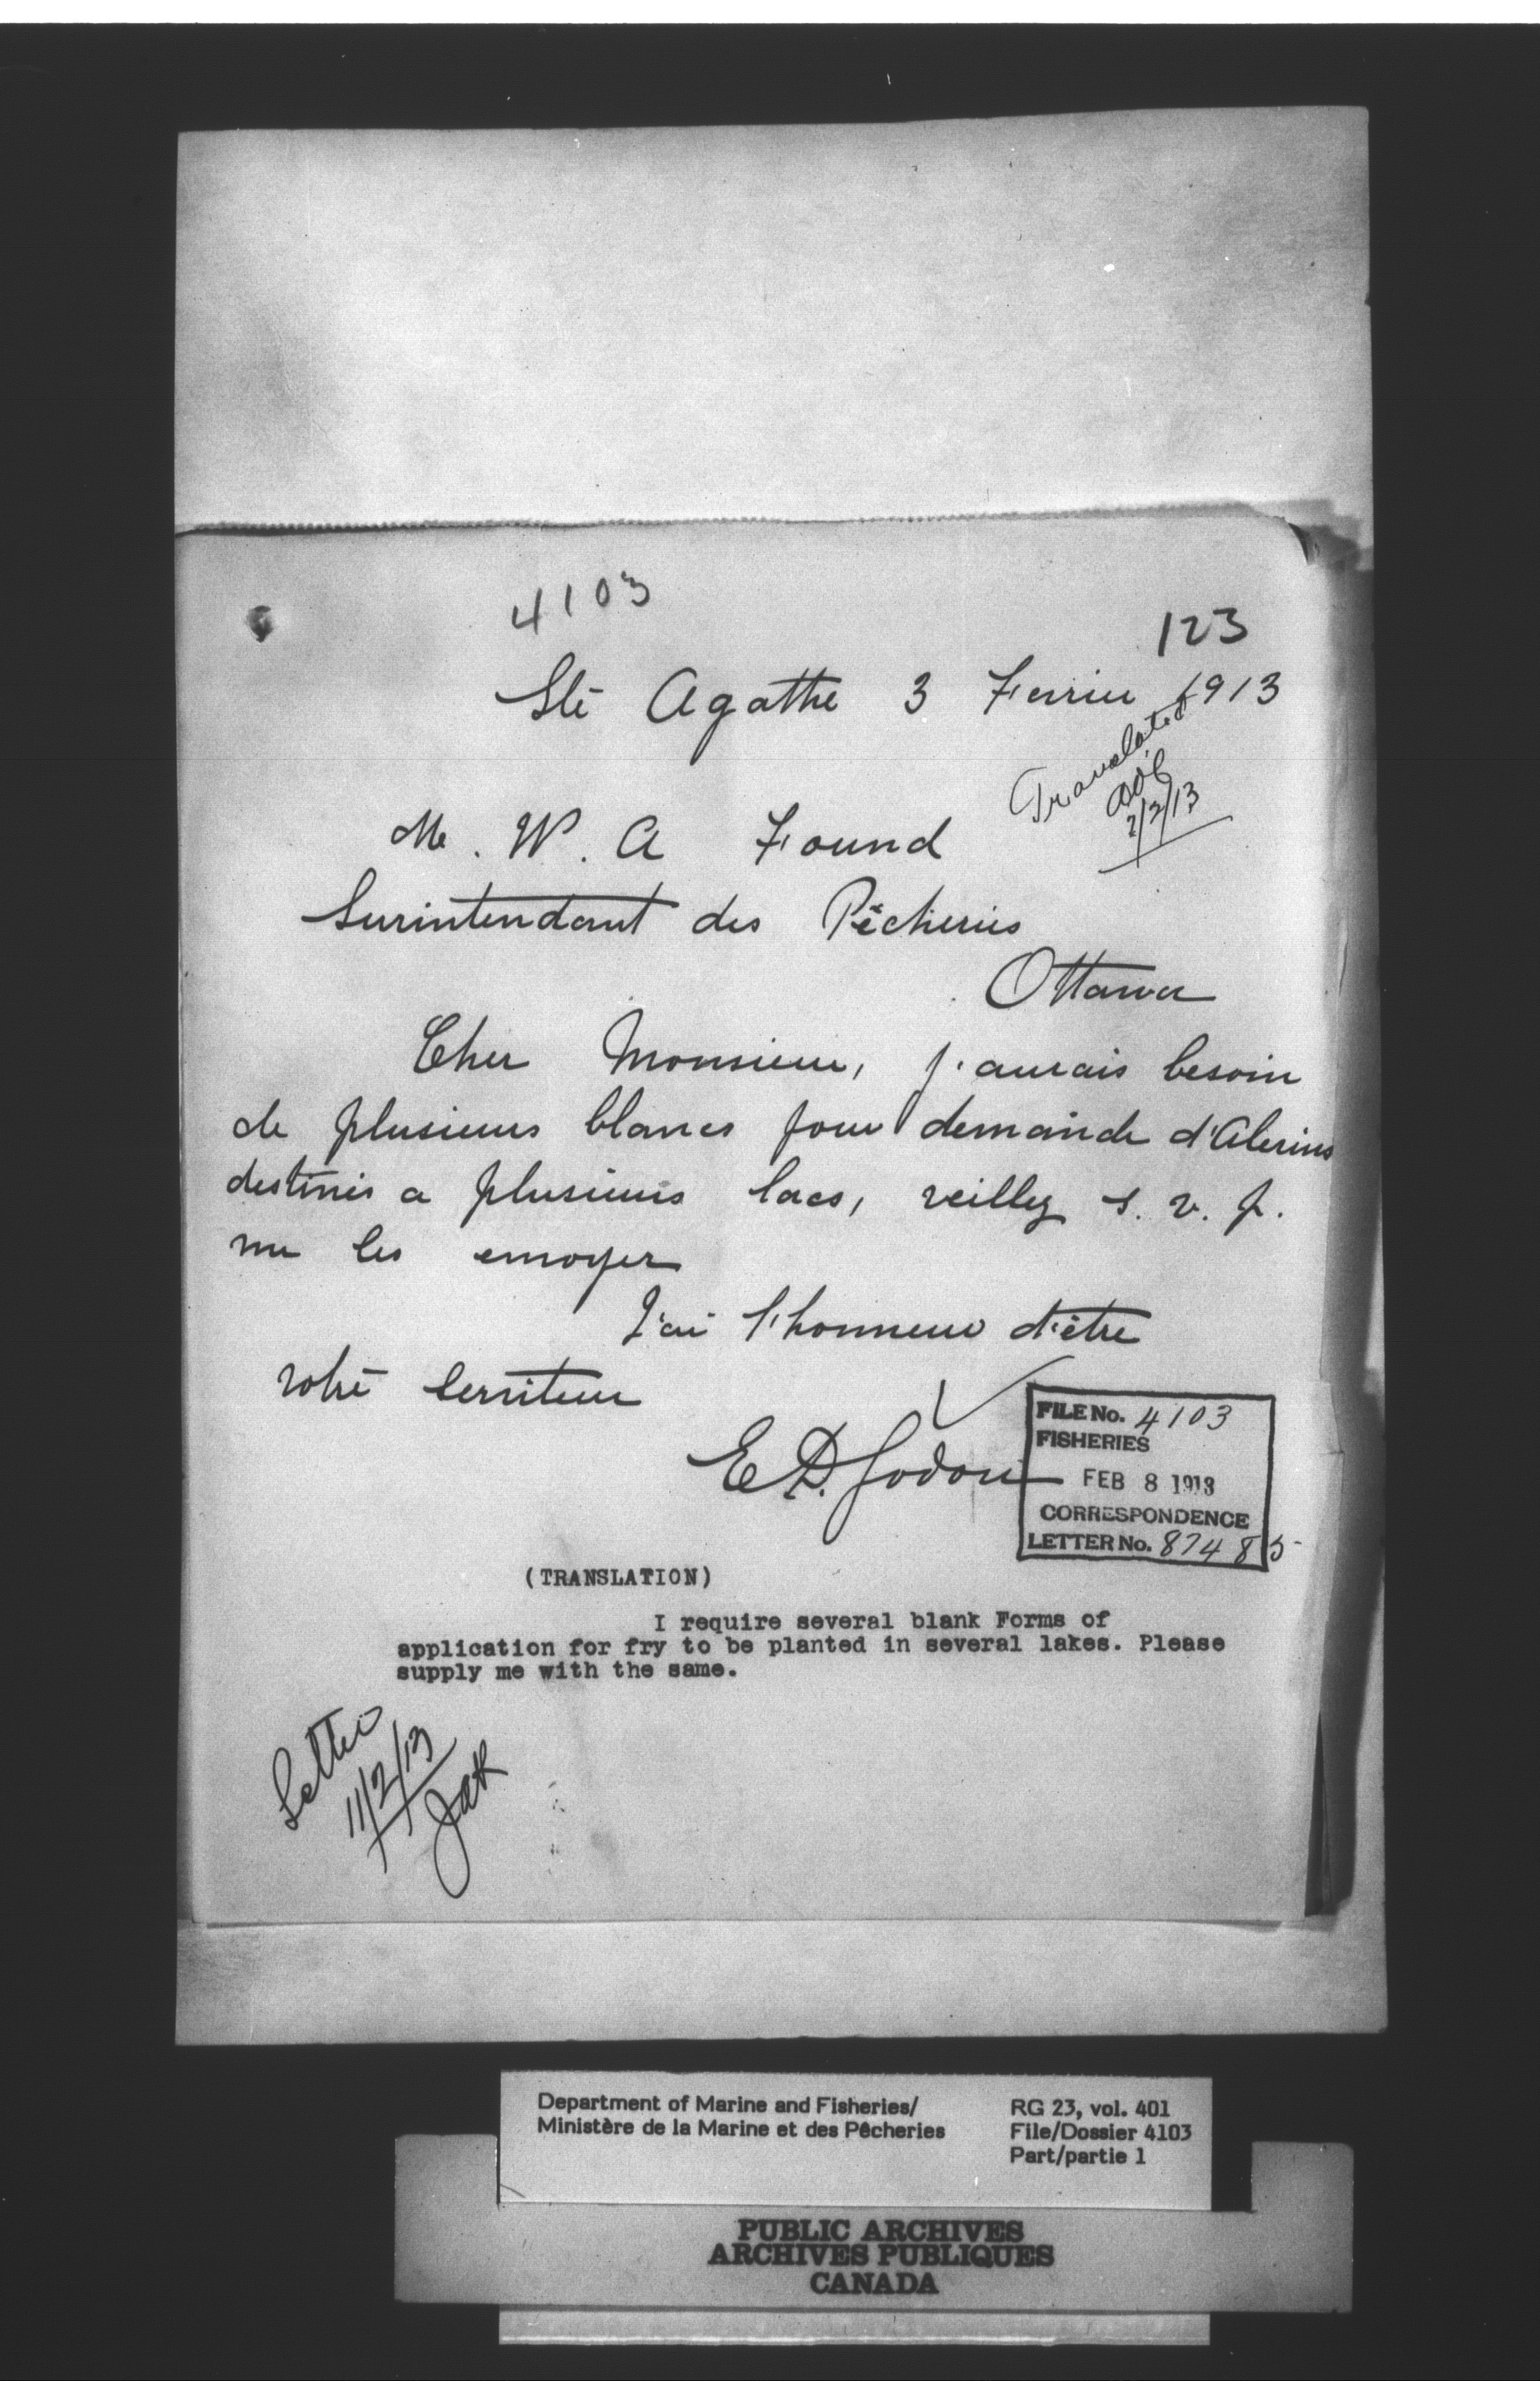 4103
123
Ste Agathe 3 Fevrier 1913
Translated
7/2/13
Mr. W. A Found
Surintendant des Pêcheries
Ottawa
Cher Monsieur, j'aurais besoin
de plusieurs blancs pour demande d'Alevins
destinés a plusieurs lacs, veillez s. v. p.
me les envoyer
J'ai l'honneur d'être
votre serviteur
E D. Godon
FILE No. 4103
FISHERIES
FEB 8 1913
CORRESPONDENCE
LETTER No. 87485
(TRANSLATION)
I require several blank Forms of
application for fry to be planted in several lakes. Please
supply me with the same.
Letter
11/2/13
Department of Marine and Fisheries/
Ministère de la Marine et des Pêcheries
RG 23, vol. 401
File/Dossier 4103
Part/partie 1
PUBLIC ARCHIVES
ARCHIVES PUBLIQUES
CANADA